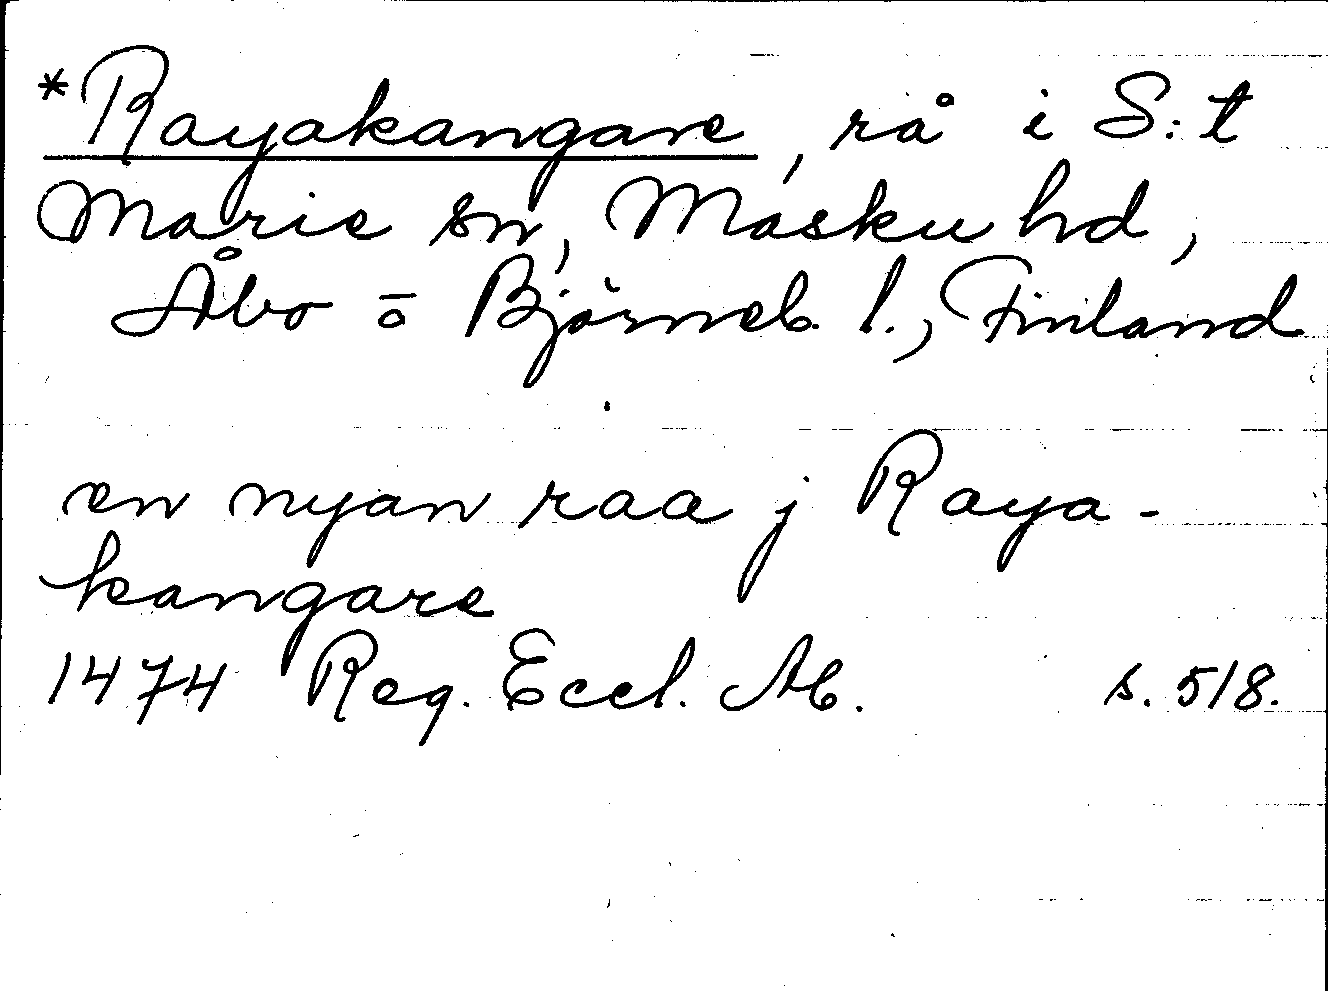 *Rayakangare, rå i S:t
Marie sn, Masku hd,
Åbo o Björneb. l., Finland
en nyan raa j Raya-
kangare
1474 Reg. Eccl. Ab. s. 518.